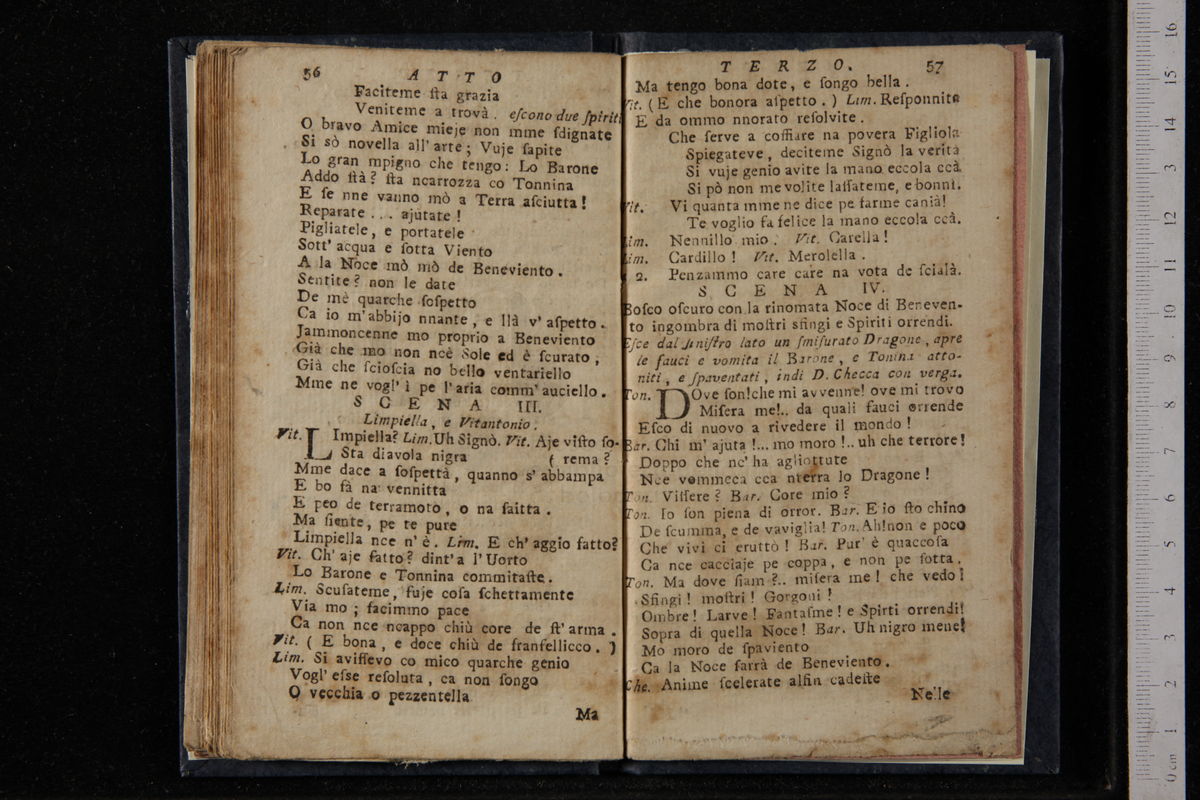 56
ATTO
Faciteme ſta grazia
Veniteme a trovà. eſcono due ſpiriti
O bravo Amice mieje non mme ſdignate
Si sò novella all' arte; Vuje ſapite
Lo gran mpigno che tengo: Lo Barone
Addo ſtà? ſta ncarrozza co Tonnina
E ſe nne vanno mò a Terra aſciutta!
Reparate ... ajutate!
Pigliatele, e portatele
Sott' acqua e ſotta Viento
A la Noce mò mò de Beneviento.
Sentite? non le date
De mè quarche ſoſpetto
Ca io m'abbijo nnante, e llà v' aſpetto.
Jammoncenne mo proprio a Beneviento
Già che mo non ncè Sole ed è ſcurato,
Già che ſcioſcia no bello ventariello
Mme ne vogl' ì pe l'aria comm' auciello.
SCENA III.
Limpiella, e Vitantonio.
Vit. LImpiella? Lim. Uh Signò. Vit. Aje viſto ſo-
Sta diavola nigra ( rema?
Mme dace a ſoſpettà, quanno s' abbampa
E bo fà na vennitta
E peo de terramoto, o na ſaitta.
Ma ſiente, pe te pure
Limpiella nce n' è. Lim. E ch' aggio fatto?
Vit. Ch' aje fatto? dint'a l'Uorto
Lo Barone e Tonnina commitaſte.
Lim. Scuſateme, fuje coſa ſchettamente
Via mo; facimmo pace
Ca non nce ncappo chiù core de ſt' arma.
Vit. ( E bona, e doce chiù de franfellicco. )
Lim. Si aviſſevo co mico quarche genio
Vogl' eſse reſoluta, ca non ſongo
O vecchia o pezzentella
Ma
TERZO.
57
Ma tengo bona dote, e ſongo bella.
Vit. ( E che bonora aſpetto. ) Lim. Reſponnite
E da ommo nnorato reſolvite.
Che ſerve a coffiare na povera Figliola
Spiegateve, deciteme Signò la verità
Si vuje genio avite la mano eccola ccà
Si pò non me volite laſſateme, e bonnì.
Vit. Vi quanta mme ne dice pe farme canià!
Te voglio fa felice la mano eccola ccà.
Lim. Nennillo mio. Vit. Carella!
Lim. Cardillo! Vit. Merolella.
2. Penzammo care care na vota de ſcialà.
SCENA IV.
Boſco oſcuro con la rinomata Noce di Beneven-
to ingombra di moſtri sfingi e Spiriti orrendi.
Eſce dal ſiniſtro lato un ſmiſurato Dragone, apre
le fauci e vomita il Barone, e Tonina atto-
niti, e ſpaventati, indi D. Checca con verga.
Ton. DOve ſon! che mi avvenne! ove mi trovo
Miſera me!.. da quali fauci orrende
Eſco di nuovo a rivedere il mondo!
Bar. Chi m' ajuta!... mo moro!.. uh che terrore!
Doppo che nc' ha agliottute
Nce vommeca cca nterra lo Dragone!
Ton. Viſſere? Bar. Core mio?
Ton. Io ſon piena di orror. Bar. E io ſto chino
De ſcumma, e de vaviglia! Ton. Ah! non e poco
Che vivi ci eruttò! Bar. Pur' è quaccoſa
Ca nce cacciaje pe coppa, e non pe ſotta.
Ton. Ma dove ſiam?.. miſera me! che vedo!
Sfingi! moſtri! Gorgoni!
Ombre! Larve! Fantaſme! e Spirti orrendi!
Sopra di quella Noce! Bar. Uh nigro mene!
Mo moro de ſpaviento
Ca la Noce farrà de Beneviento.
Che. Anime ſcelerate alfin cadeſte
Nelle
0 cm 1 2 3 4 5 6 7 8 9 10 11 12 3 14 15 16